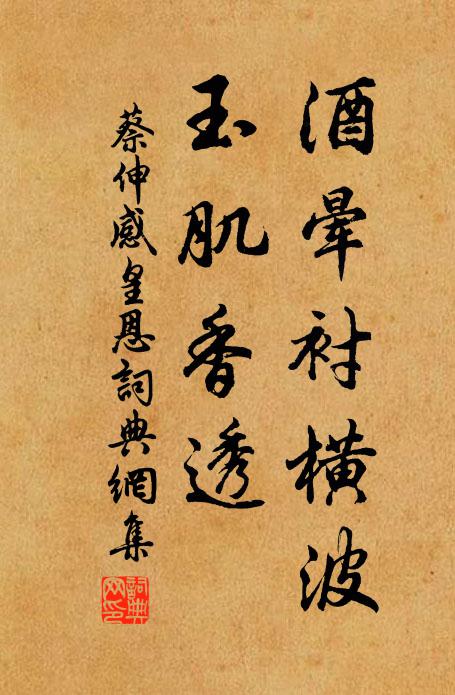 酒暈衬橫波
玉肌香透
蔡伸感皇恩詞典網集
詞典网印